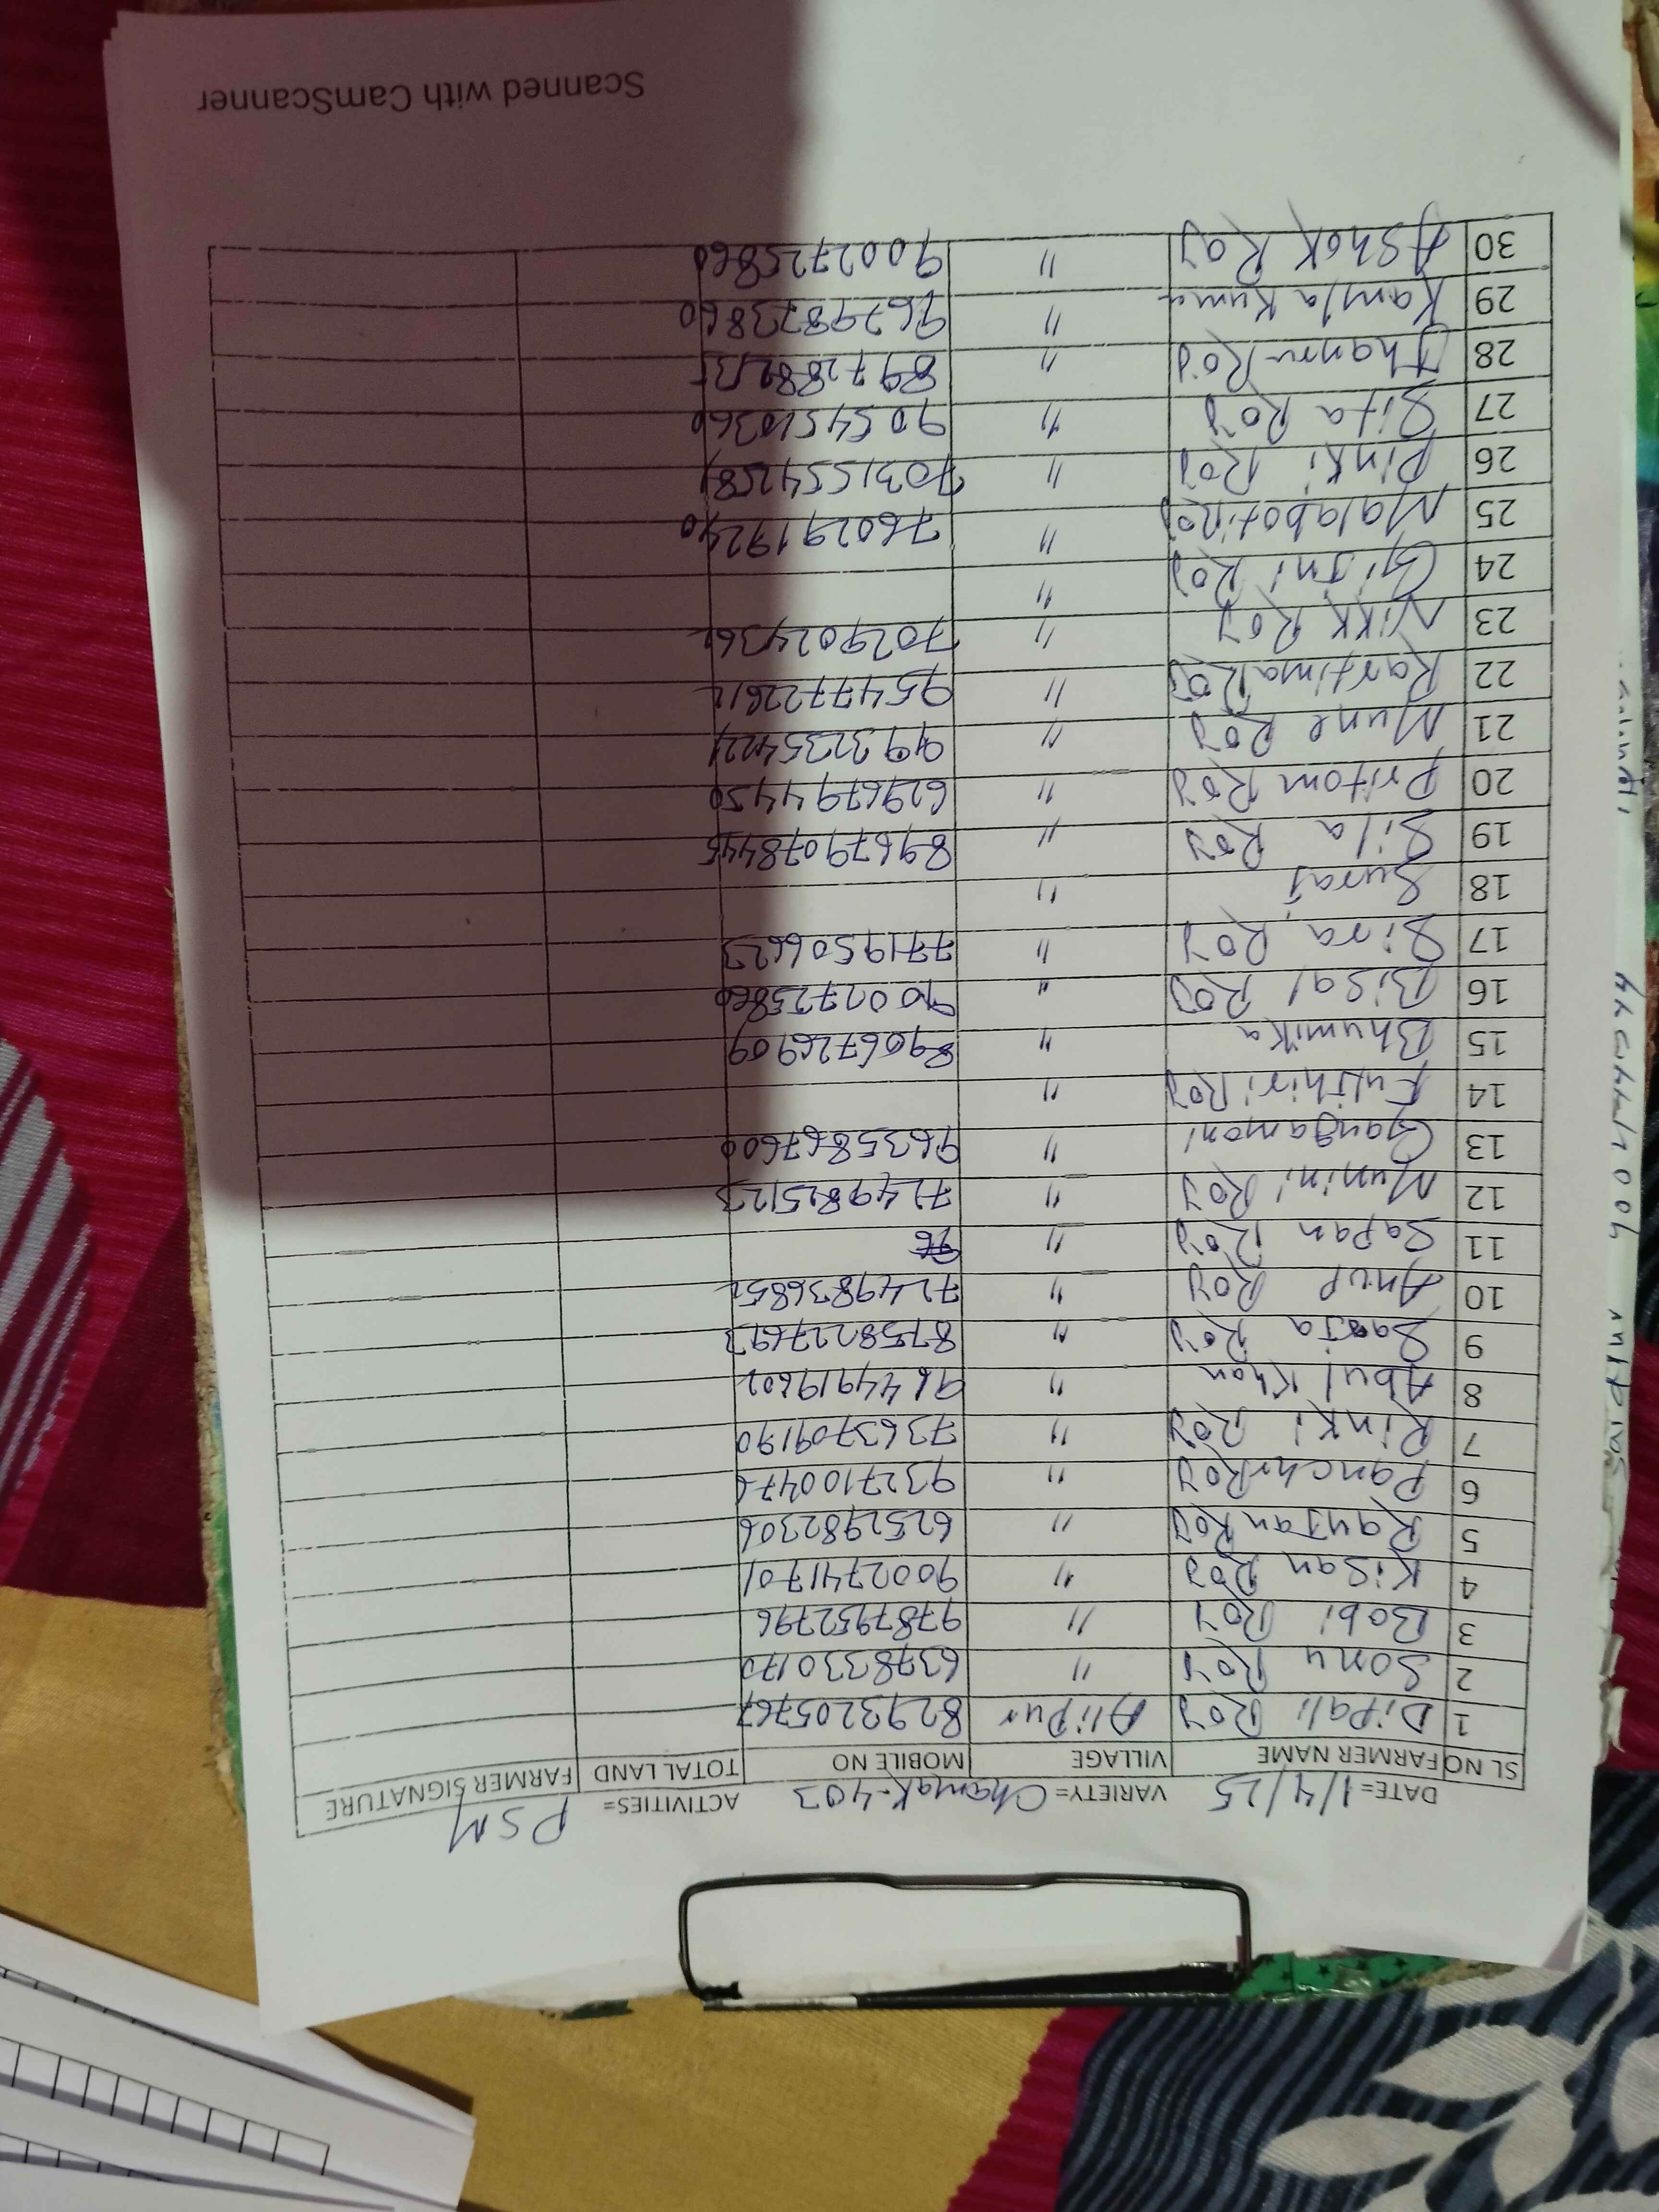 DATE=1/4/25 VARIETY= Chamak-403 ACTIVITIES= PSM
SL NO FARMER NAME VILLAGE MOBILE NO TOTAL LAND FARMER SIGNATURE
1 Dipali Roy Alipur 8293205767
2 Sonu Roy " 6378330170
3 Bobi Roy " 9787952796
4 Kisan Roy " 9002741701
5 Ranjan Roy " 6252982306
6 Panchu Roy " 9327100476
7 Rinki Roy " 7363709190
8 Abul Khan " 9644919602
9 Roy " 8758227693
10 Anup Roy " 7249836852
11 Sapan Roy "
12 Munini Roy " 7249825123
13 Gangamoni " 9635867600
14 Roy "
15 Bhumika " 8906726909
16 Bisal Roy " 9002725860
17 Roy " 7719506623
18 Suraj "
19 Sila Roy " 8967907844
20 Pritom Roy " 6296794450
21 Mune Roy "
22 Roy "
23 Nikk Roy " 7029024362
24 Roy "
25 Malaboti Roy " 7602919240
26 Pinki Roy "
27 Sita Roy "
28 Roy "
29 Kamla Kuma " 9679873860
30 Ashok Roy " 9002725860
Scanned with CamScanner